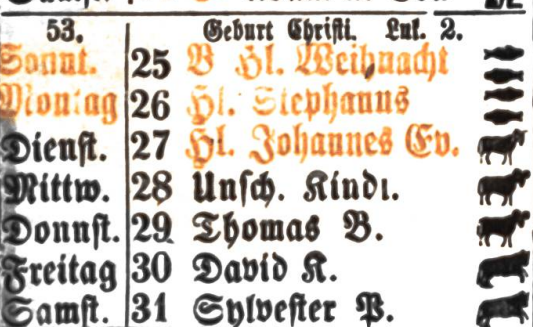 53. Geburt Christi. Luk. 2.
Sonnt. 25 B Hl. Weihnacht
Montag 26 Hl. Stephanus
Dienst. 27 Hl. Johannes Ev.
Mittw. 28 Unsch. Kindl.
Donnst. 29 Thomas B.
Freitag 30 David K.
Samst. 31 Sylvester P.